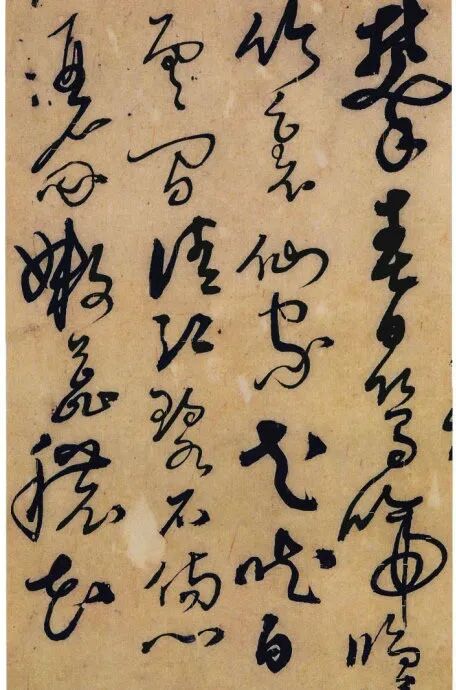 攀春日鶯啼脩
竹裏仙家犬吠白
雲間清江碧石傷心
麗嫩蕊穠花